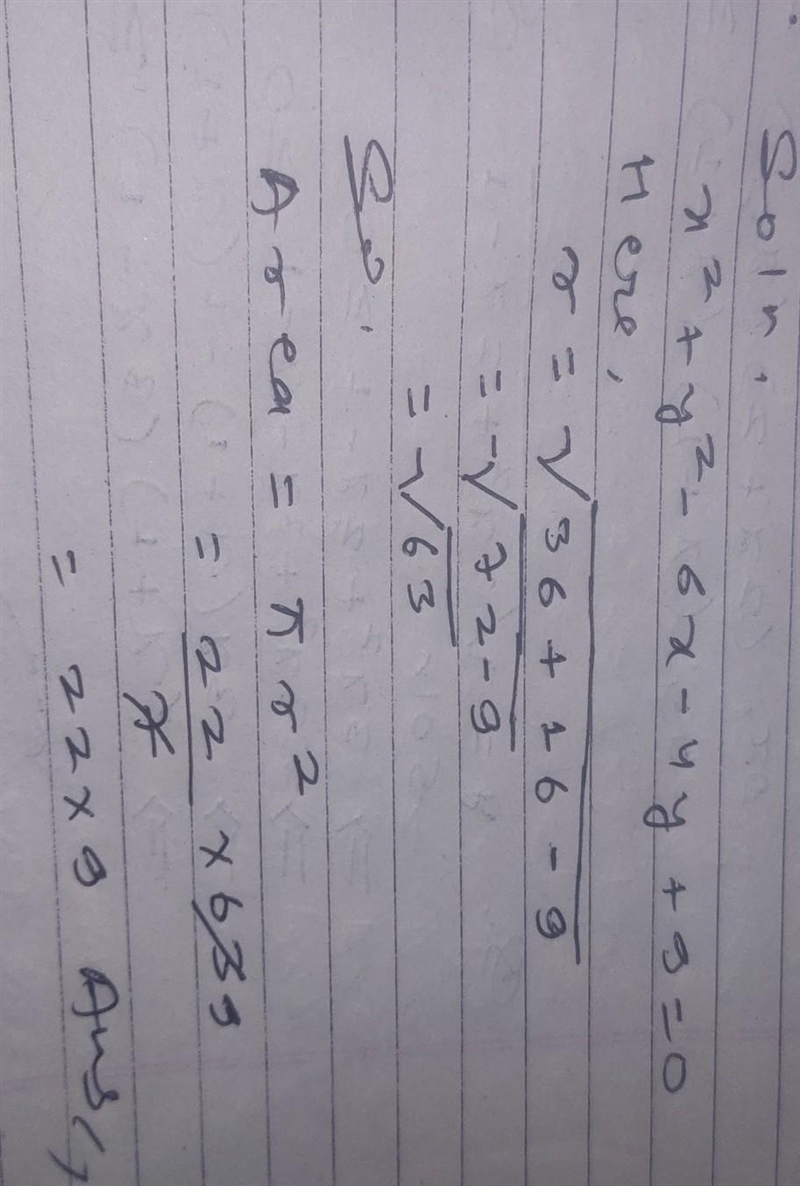 Soln,
x² + y² - 6x - 4y + 9 = 0
Here,
r = √36 + 16 - 9
= √72 - 9
= √63
So,
Area = πr²
= 22/7 × 63 9
= 22 × 9 Ans//